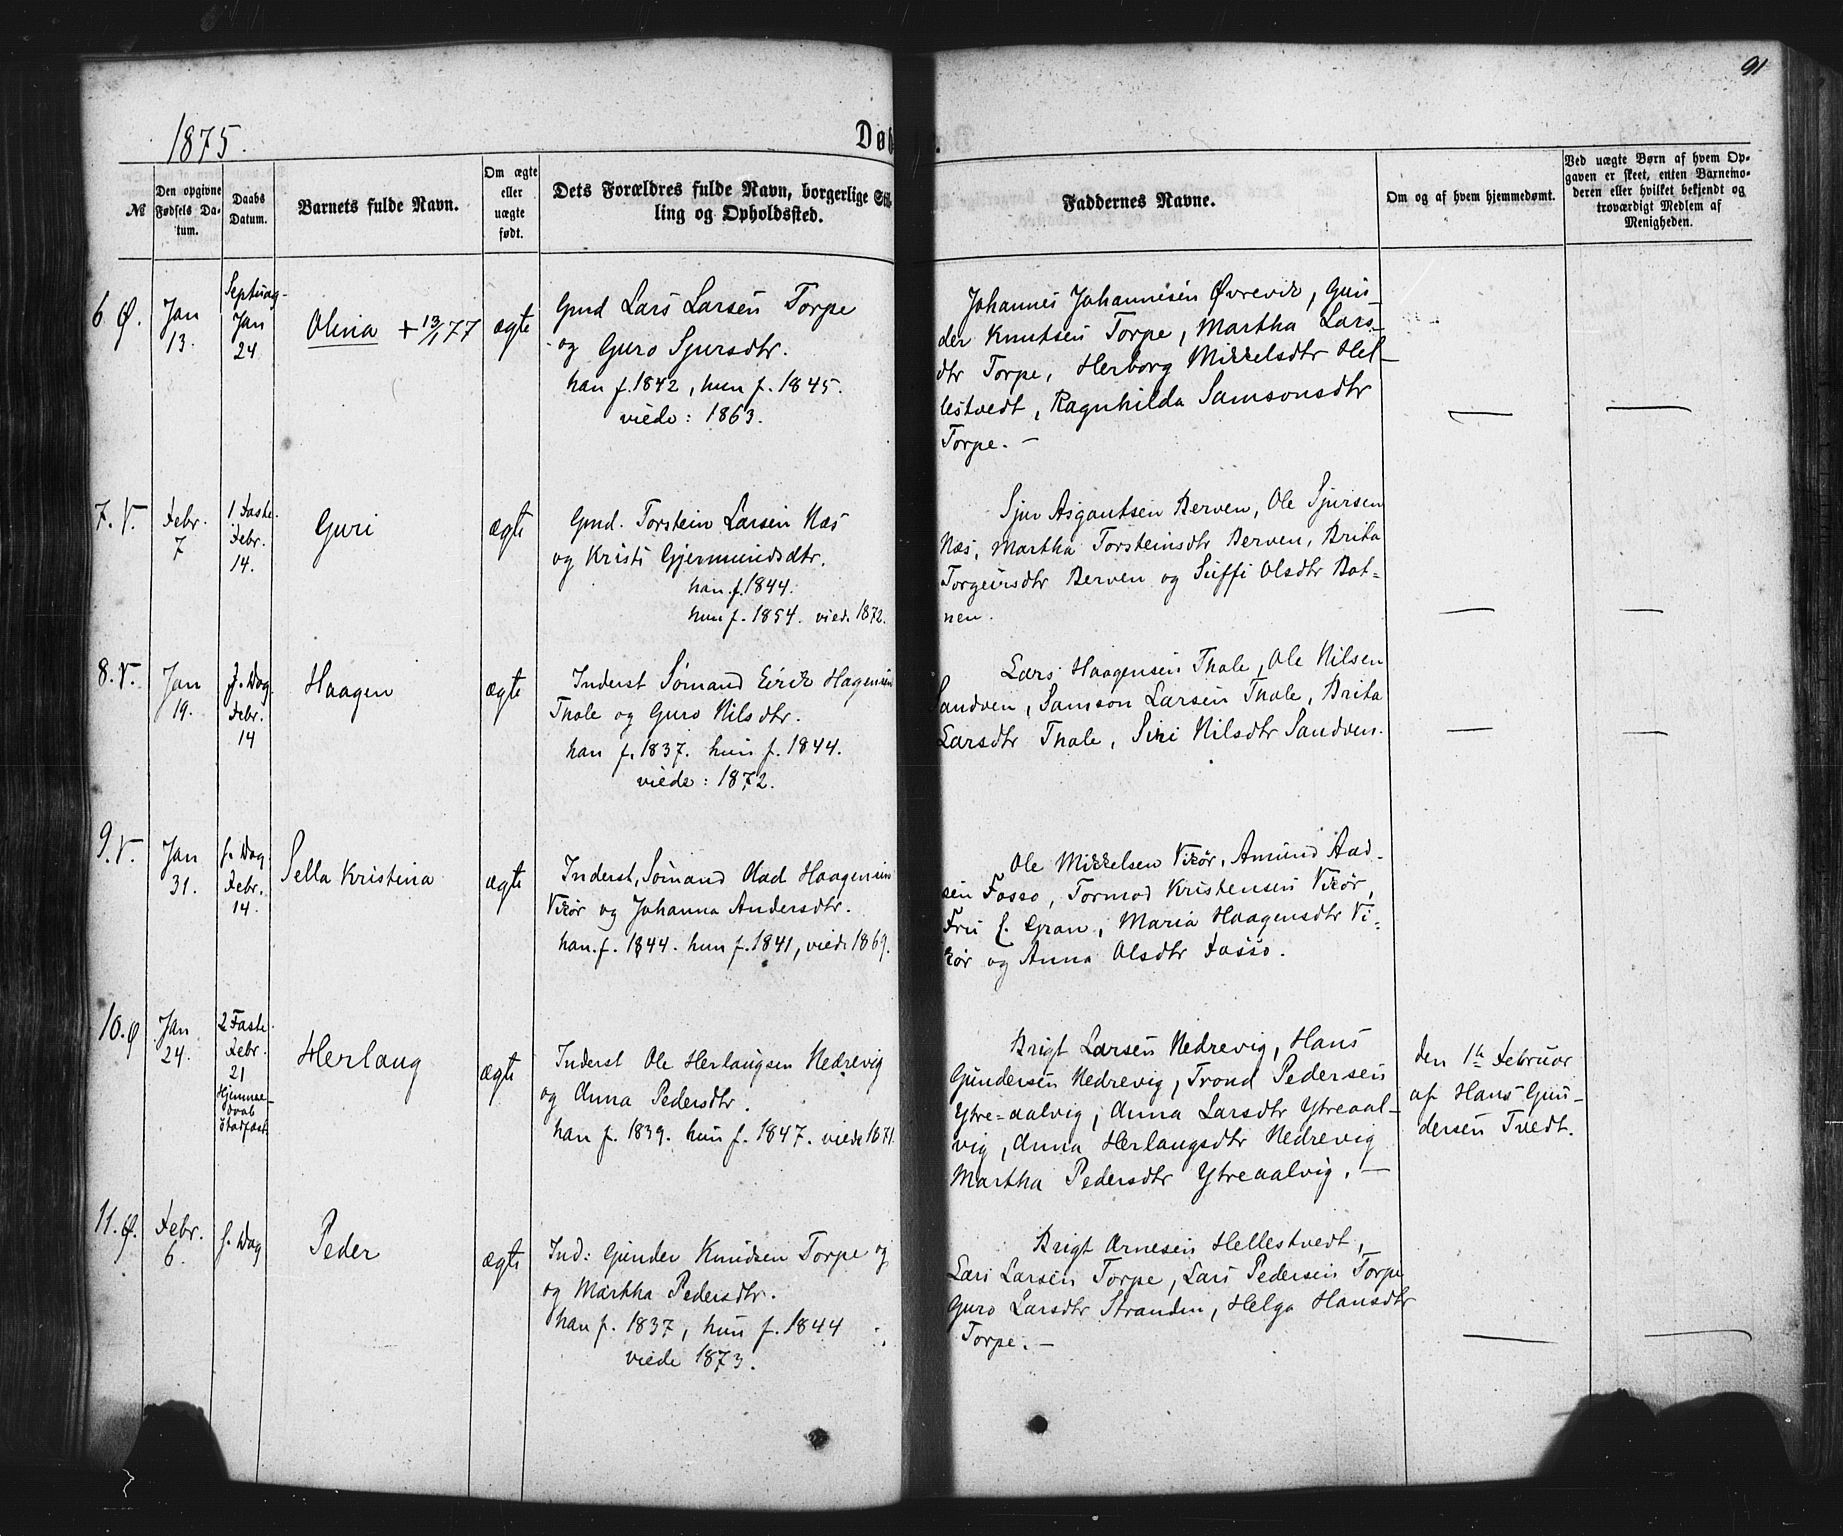 91
1875.
Døb
№
Den opgivne Fødsels Da-
tum.
Daabs
Datum.
Barnets fulde Navn.
Om ægte
eller
uægte
født.
Dets Forældres fulde Navn, borgerlige Stil-
ling og Opholdssted.
Faddernes Navne.
Om og af hvem hjemmedømt.
Ved uægte Børn af hvem Op-
gaven er skeet, enten Barnemo-
deren eller hvilket bekjendt og
troværdigt Medlem af
Menigheden.
6 Ø.
Jan
13.
Septuag-
Jan
24
Olina + 13/1 77
ægte
Gmd Lars Larsen Torpe
og Guro Sjursdtr.
han f. 1842, hun f. 1845.
viede: 1863.
Johannes Johannesen Øvrevik, Gun
der Knutsen Torpe, Martha Lars-
dtr Torpe, Herborg Mikkelsdtr Hel-
lestvedt, Ragnhilda Samsonsdtr
Torpe. —
7. V.
Febr.
7
1 Faste.
Febr.
14.
Guri
ægte
Gmd. Torstein Larsen Næs
og Kristi Gjermundsdtr.
han f. 1844.
hun f. 1854. vied. 1872.
Sjur Asgautsen Berven, Ole Sjursen
Næs, Martha Torsteinsdtr Berven, Brita
Torgeirsdtr Berven og Siffi Olsdtr Bot-
nen.
8. V.
Jan
19.
f. Dag
Febr.
14
Haagen
ægte
Inderst Sømand Eirik Hagensen
Thole og Guro Nilsdtr.
han f. 1837. hun f. 1844.
viede: 1872.
Lars Haagensen Thole, Ole Nilsen
Sandven, Samson Larsen Thole, Brita
Larsdtr Thole, Siri Nilsdtr Sandven.
9. V.
Jan
31.
f. Dag
Febr.
14.
Sella Kristina
ægte
Inderst, Sømand Aad Haagensen
Vikør og Johanna Andersdtr.
han f. 1844. hun f. 1841, vied. 1869.
Ole Mikkelsen Vikør, Amund Aad-
sen Fosso, Tormod Kristensen Vikør,
Fru C. Gran, Maria Haagensdtr Vi-
kør og Anna Olsdtr Fosso.
10. Ø
Jan
24.
2 Faste.
Febr.
21
Hjemme-
daab
stadfæst
Herlaug
ægte
Inderst Ole Herlaugsen Nedrevig
og Anna Pedersdtr.
han f. 1839. hun f. 1847. viede 1871.
Brigt Larsen Nedrevig, Hans
Gundersen Nedrevig, Trond Pedersen
Ytre-aalvig, Anna Larsdtr Ytreaal-
vig, Anna Herlaugsdtr Nedrevig
Martha Pedersdtr Ytreaalvig. —
den 1te Februar
af Hans Gun-
dersen Tvedt.
11. Ø.
Febr.
6.
f. Dag
Peder
ægte
Ind: Gunder Knudsen Torpe og
og Martha Pedersdtr.
han f. 1837, hun f. 1844
viede 1873.
Brigt Arnesen Hellestvedt,
Lars Larsen Torpe, Lars Pedersen Torpe
Guro Larsdtr Stranden, Helga Hansdtr
Torpe. —